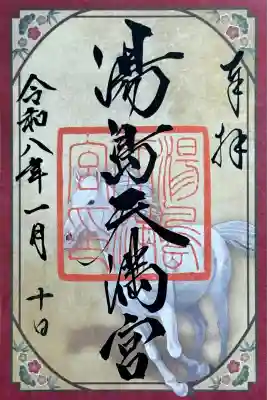 奉拝
湯島天満宮
令和八年一月十日